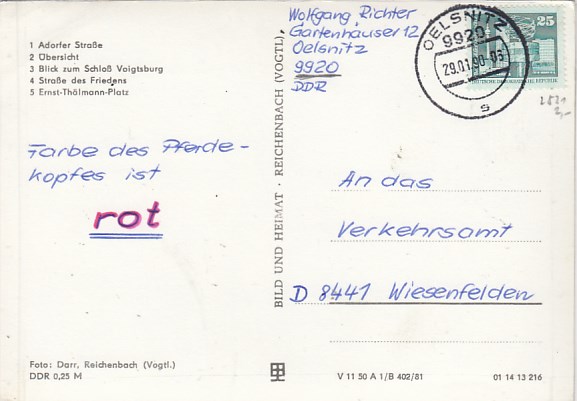 1 Adorfer Straße
2 Übersicht
3 Blick zum Schloß Voigtsburg
4 Straße des Friedens
5 Ernst-Thälmann-Platz
Farbe des Pferde-
kopfes ist
rot
Foto: Darr, Reichenbach (Vogtl.)
DDR 0,25 M
BILD UND HEIMAT · REICHENBACH (VOGTL)
Wolfgang Richter
Gartenhäuser 12
Oelsnitz
9920
DDR
OELSNITZ
9920
29.01.90-06
s
25
DEUTSCHE DEMOKRATISCHE REPUBLIK
An das
Verkehrsamt
D 8441 Wiesenfelden
V 11 50 A 1/B 402/81
01 14 13 216